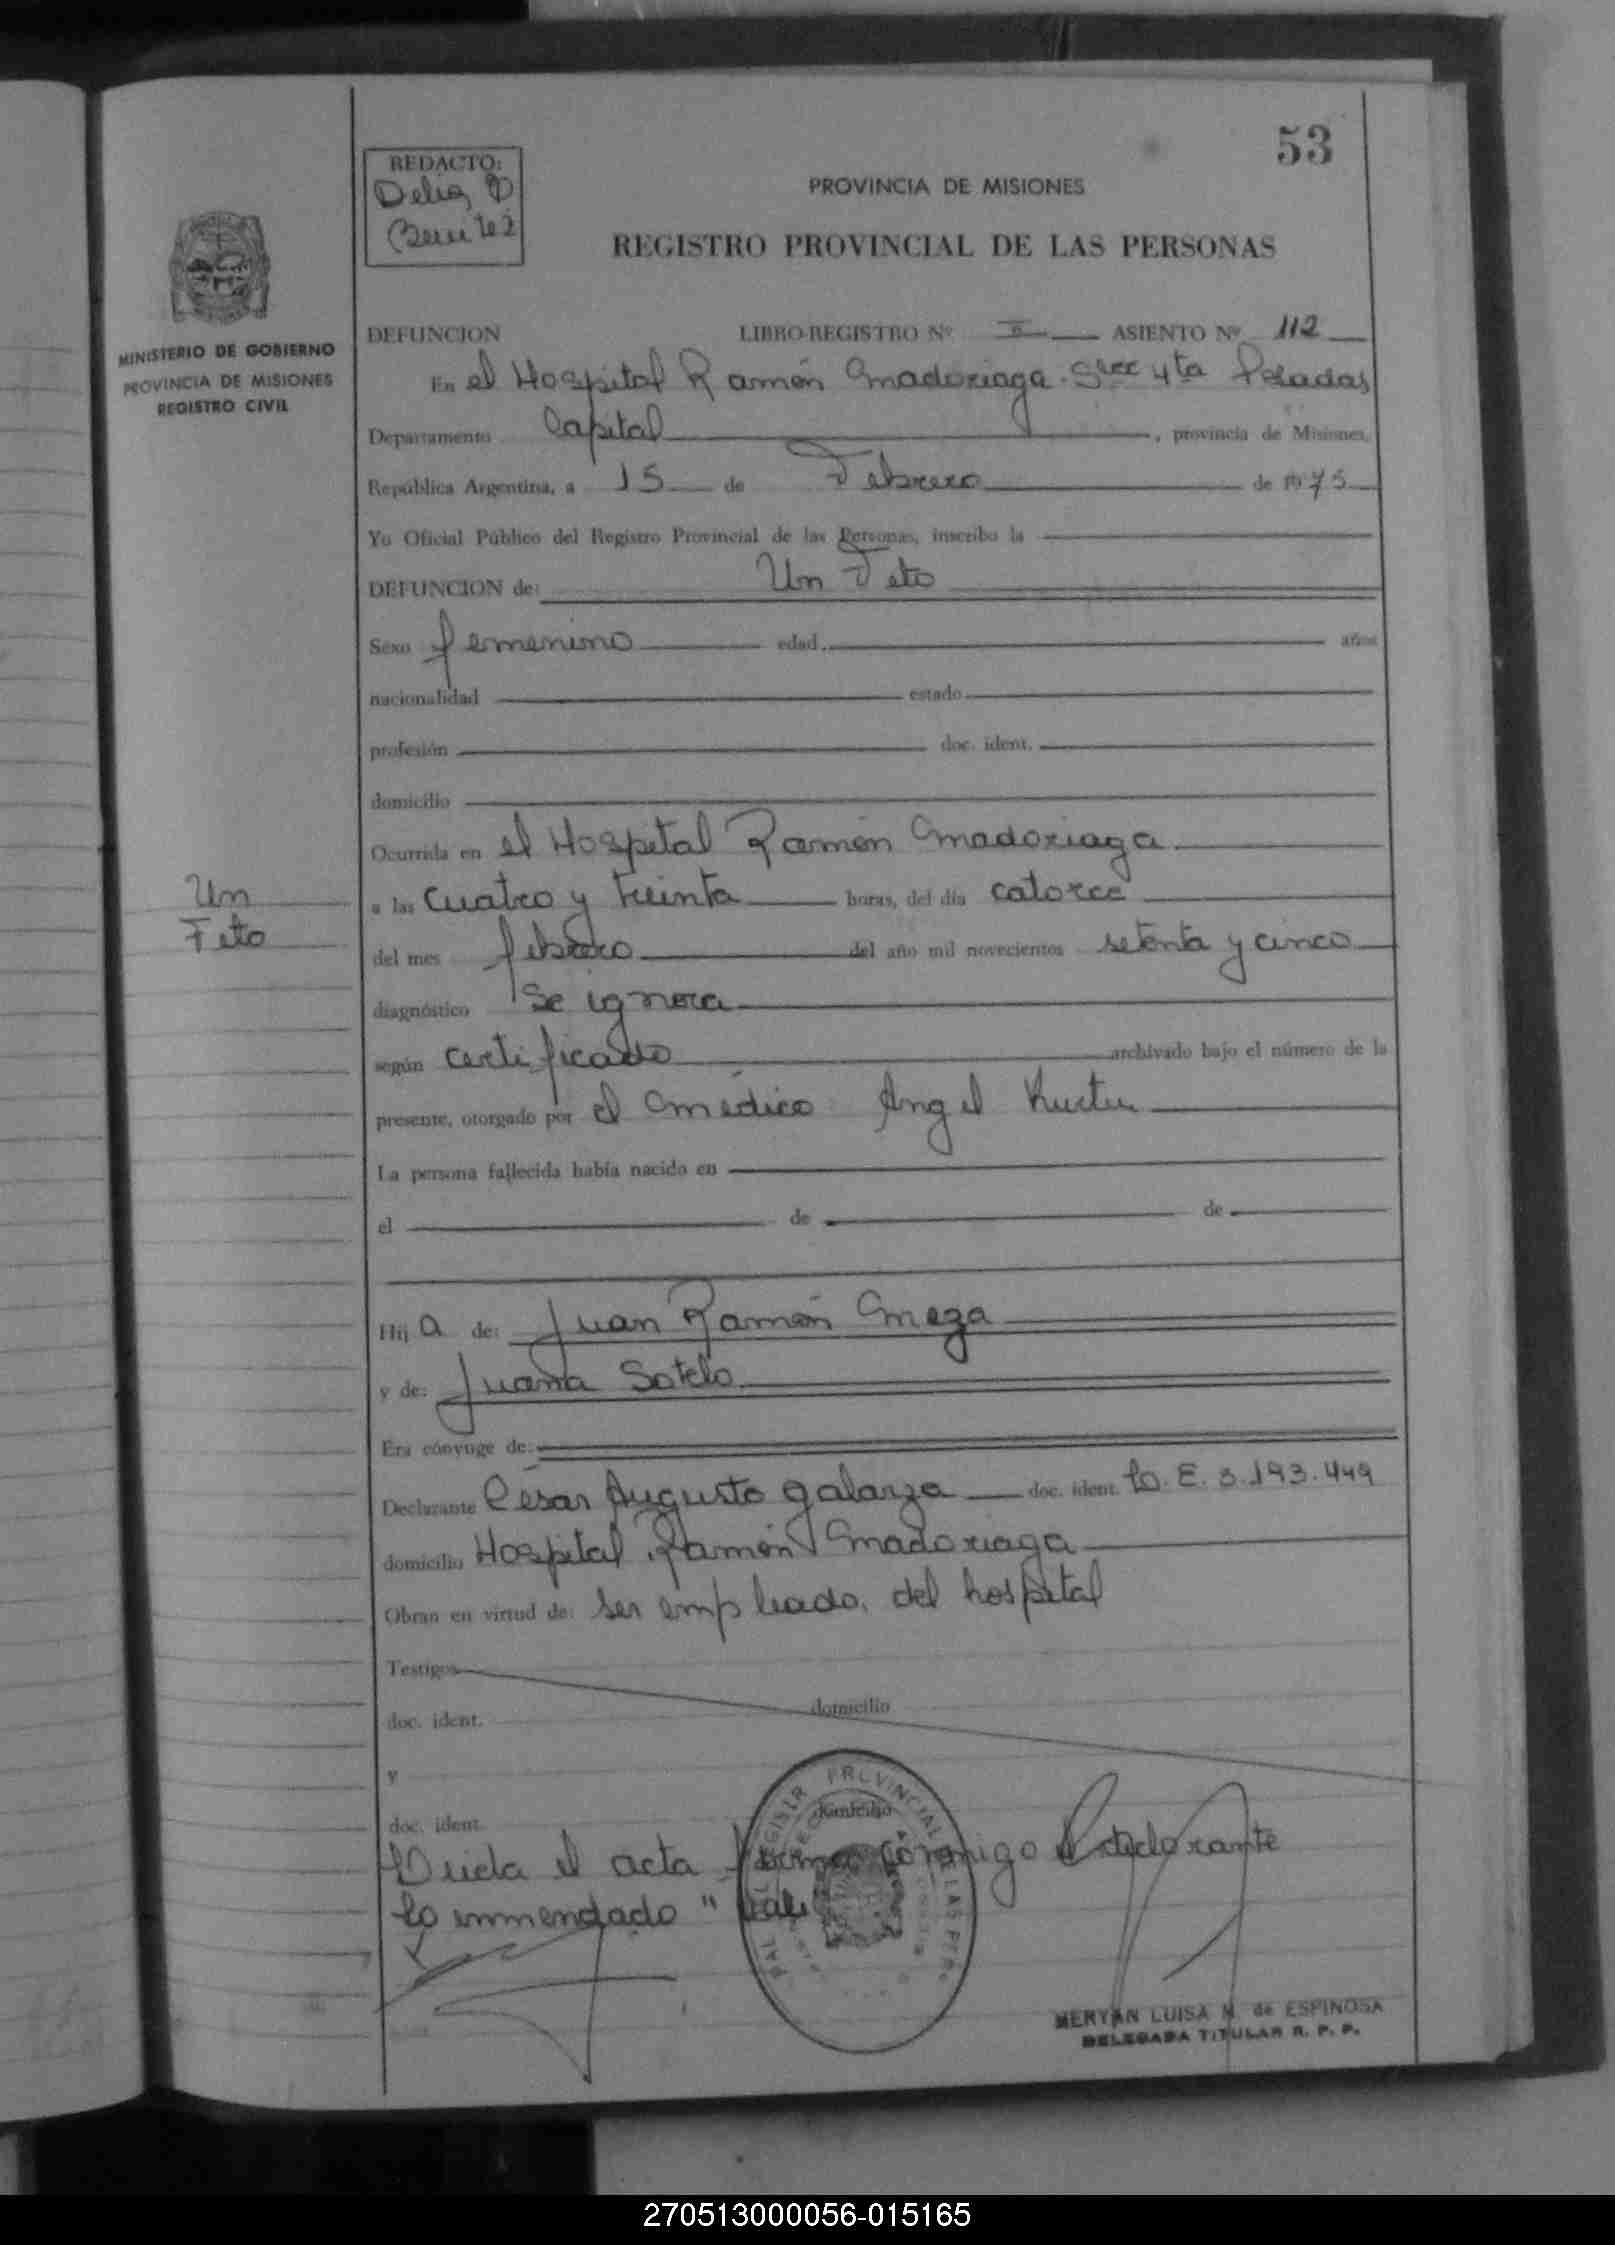 53
REDACTO:
Delia
Benitez
PROVINCIA DE MISIONES
REGISTRO PROVINCIAL DE LAS PERSONAS
MINISTERIO DE GOBIERNO
PROVINCIA DE MISIONES
REGISTRO CIVIL
DEFUNCION LIBRO-REGISTRO Nº ASIENTO Nº 112
En el Hospital Ramón Madoriaga Secc 4ta Posadas
Departamento Capital, provincia de Misiones,
República Argentina, a 15 de Febrero de 1975
Yo Oficial Público del Registro Provincial de las Personas, inscribo la
DEFUNCION de: Un Feto
Sexo femenino edad años
nacionalidad estado
profesión doc. ident.
domicilio
Ocurrida en el Hospital Ramón Madoriaga
Un
Feto
a las cuatro y treinta horas, del día catorce
del mes febrero del año mil novecientos setenta y cinco
diagnóstico Se ignora
según certificado archivado bajo el número de la
presente, otorgado por el médico Angel
La persona fallecida había nacido en
el de de
Hij a de: Juan Ramón Meza
y de: Juana Sotelo
Era cónyuge de:
Declarante César Augusto galarza doc. ident. L. E. 3.193.449
domicilio Hospital Ramón Madoriaga
Obran en virtud de: ser empleado del hospital
Testigos
doc. ident. domicilio
y
doc. ident. domicilio
Leida el acta firma conmigo el declarante
Lo enmendado "
MERYAN LUISA M. de ESPINOSA
DELEGADA TITULAR R. P. P.
270513000056-015165